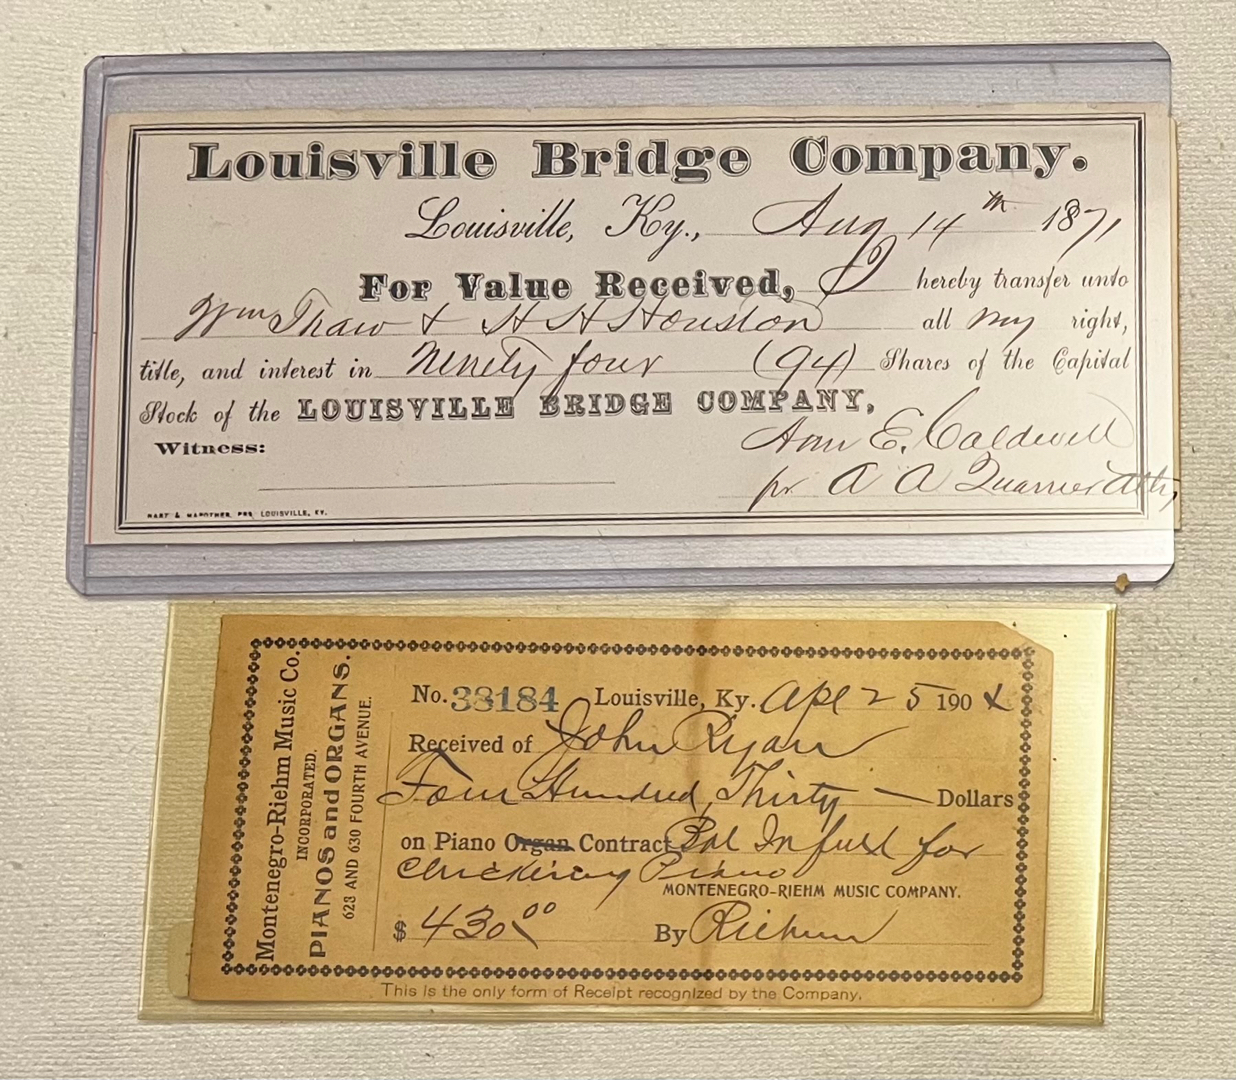 Louisville Bridge Company.
Louisville, Ky., Aug 14th 1871
For Value Received, I hereby transfer unto
Wm Thaw & H H Houston all my right,
title, and interest in Ninety four (94) Shares of the Capital
Stock of the LOUISVILLE BRIDGE COMPANY,
Witness:
Ann E. Caldwell
pr A A Quarrier Atty
HART & MAPOTHER, PRS, LOUISVILLE, KY.
Montenegro-Riehm Music Co.
INCORPORATED.
PIANOS and ORGANS.
628 AND 630 FOURTH AVENUE.
No. 38184 Louisville, Ky. Apl 25 190
Received of John Ryan
Four Hundred, Thirty — Dollars
on Piano Organ Contract Bal In full for
Chickering Piano
MONTENEGRO-RIEHM MUSIC COMPANY.
$ 430.00 By Riehm
This is the only form of Receipt recognized by the Company.